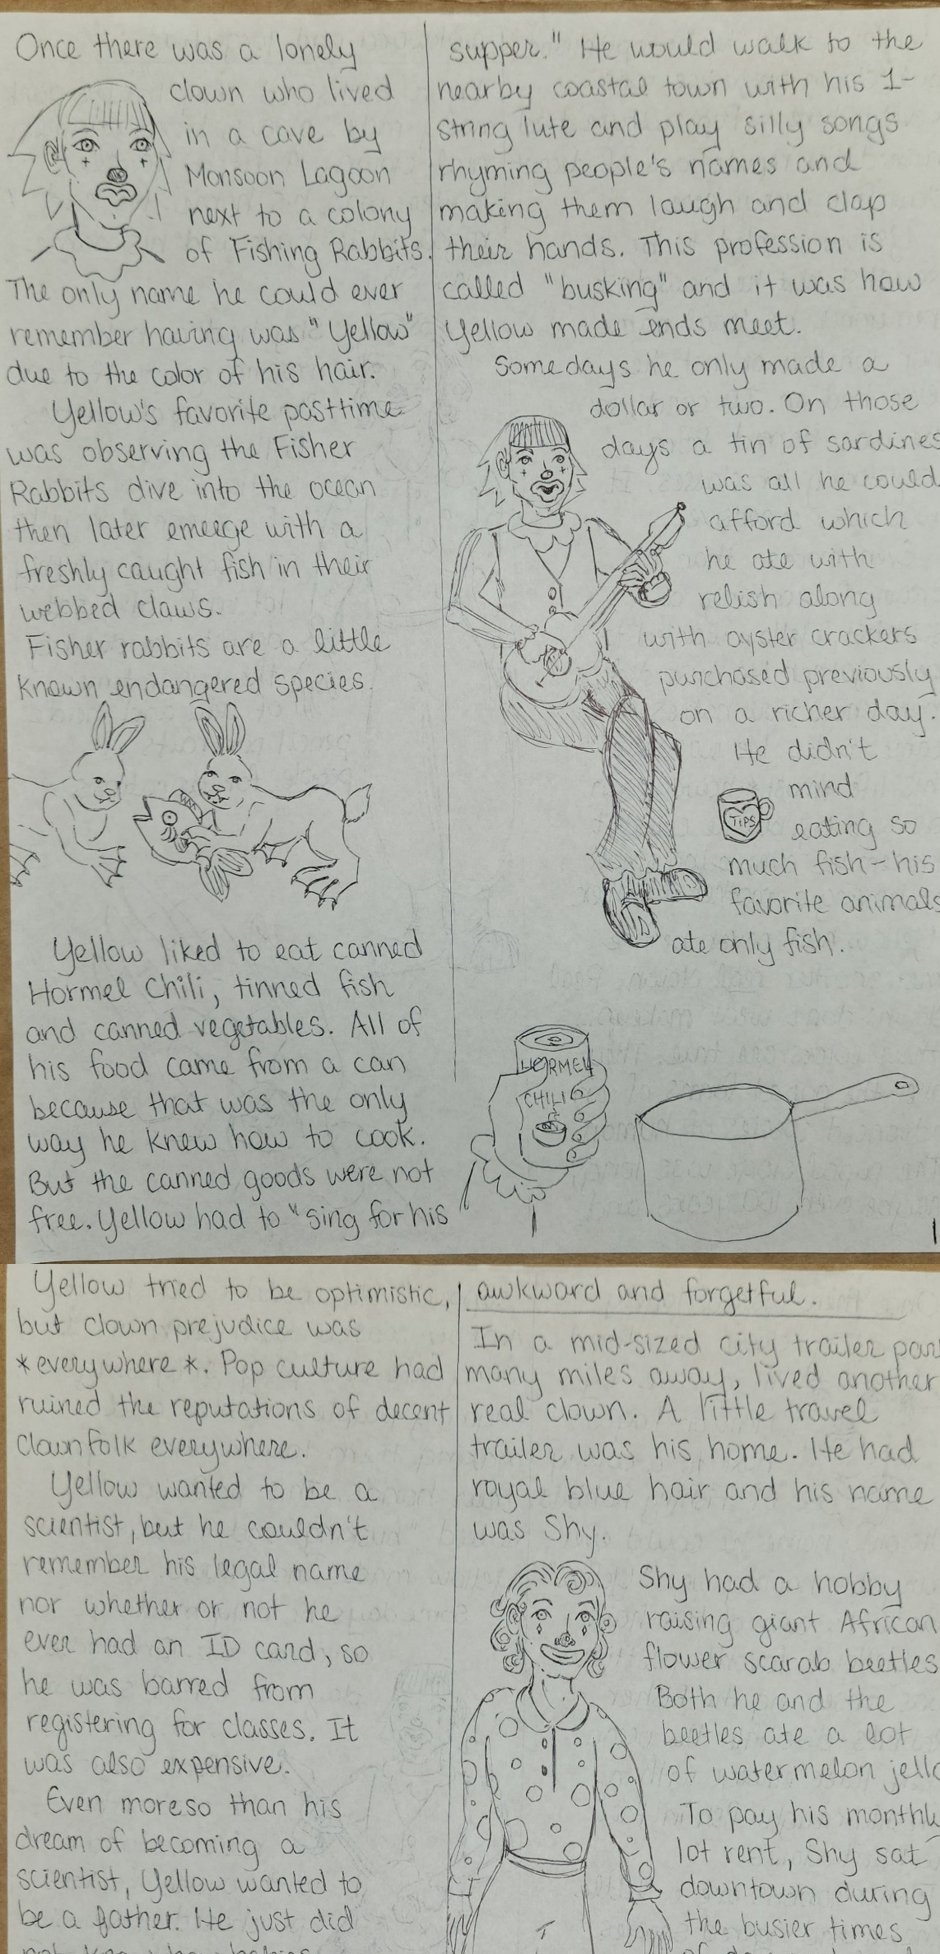 Once there was a lonely
clown who lived
in a cave by
Monsoon Lagoon
next to a colony
of Fishing Rabbits.
The only name he could ever
remember having was "Yellow"
due to the color of his hair.
Yellow's favorite pasttime
was observing the Fisher
Rabbits dive into the ocean
then later emerge with a
freshly caught fish in their
webbed claws.
Fisher rabbits are a little
known endangered species.
Yellow liked to eat canned
Hormel Chili, tinned fish
and canned vegetables. All of
his food came from a can
because that was the only
way he knew how to cook.
But the canned goods were not
free. Yellow had to "sing for his
supper." He would walk to the
nearby coastal town with his 1-
string lute and play silly songs
rhyming people's names and
making them laugh and clap
their hands. This profession is
called "busking" and it was how
Yellow made ends meet.
Somedays he only made a
dollar or two. On those
days a tin of sardines
was all he could
afford which
he ate with
relish along
with oyster crackers
purchased previously
on a richer day.
He didn't
mind
TIPS
eating so
much fish-his
favorite animals
ate only fish.
HORMEL
CHILI
1
Yellow tried to be optimistic,
but clown prejudice was
*everywhere*. Pop culture had
ruined the reputations of decent
clownfolk everywhere.
Yellow wanted to be a
scientist, but he couldn't
remember his legal name
nor whether or not he
ever had an ID card, so
he was barred from
registering for classes. It
was also expensive.
Even moreso than his
dream of becoming a
scientist, Yellow wanted to
be a father. He just did
awkward and forgetful.
In a mid-sized city trailer par
many miles away, lived another
real clown. A little travel
trailer was his home. He had
royal blue hair and his name
was Shy.
Shy had a hobby
raising giant African
flower scarab beetles
Both he and the
beetles ate a lot
of watermelon jello
To pay his monthly
lot rent, Shy sat
downtown during
the busier times